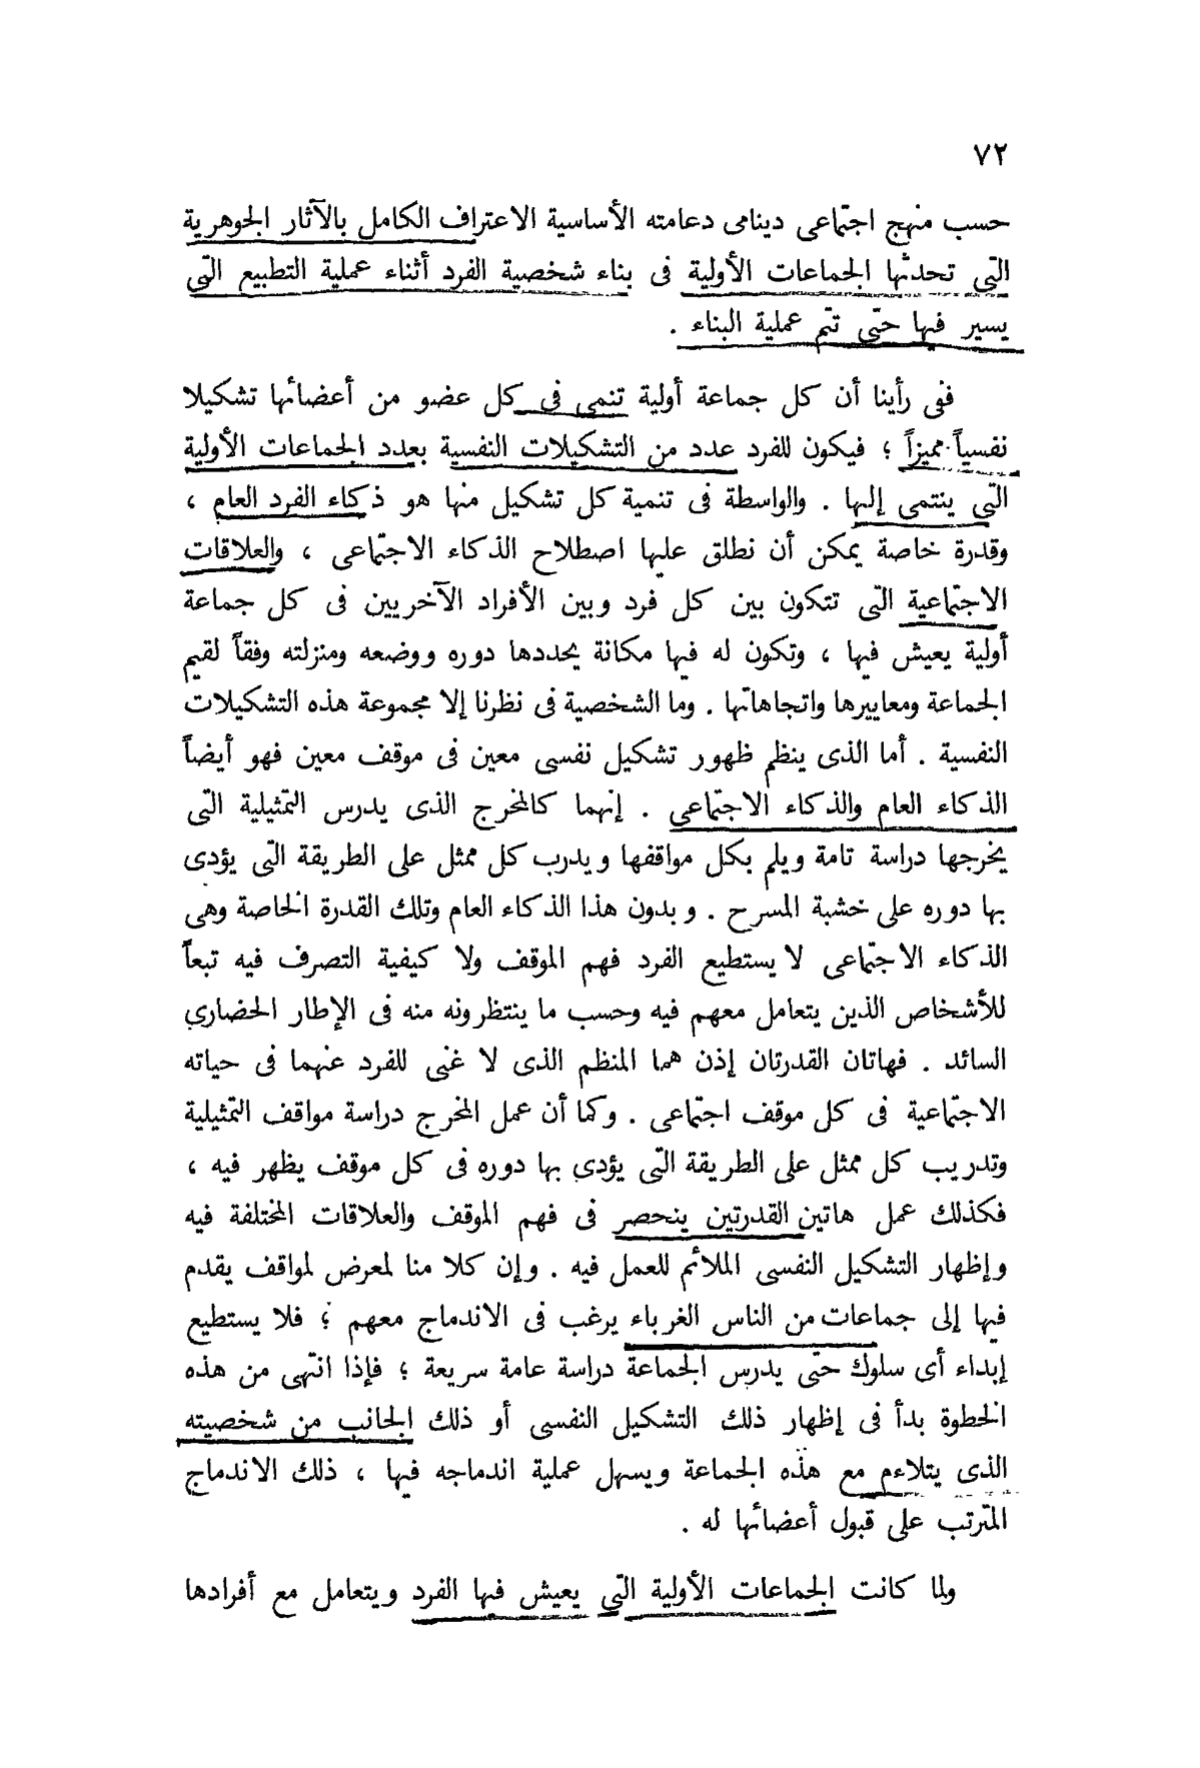 ٧٢
حسب منهج اجتماعى دينامى دعامته الأساسية الاعتراف الكامل بالآثار الجوهرية
التى تحدثها الجماعات الأولية فى بناء شخصية الفرد أثناء عملية التطبيع التى
يسير فيها حتى تتم عملية البناء .
ففى رأينا أن كل جماعة أولية تنمى فى كل عضو من أعضائها تشكيلا
نفسياً مميزاً ؛ فيكون للفرد عدد من التشكيلات النفسية بعدد الجماعات الأولية
التى ينتمى إليها . والواسطة فى تنمية كل تشكيل منها هو ذكاء الفرد العام ،
وقدرة خاصة يمكن أن نطلق عليها اصطلاح الذكاء الاجتماعى ، والعلاقات
الاجتماعية التى تتكون بين كل فرد وبين الأفراد الآخريين فى كل جماعة
أولية يعيش فيها ، وتكون له فيها مكانة يحددها دوره ووضعه ومنزلته وفقاً لقيم
الجماعة ومعاييرها واتجاهاتها . وما الشخصية فى نظرنا إلا مجموعة هذه التشكيلات
النفسية . أما الذى ينظم ظهور تشكيل نفسى معين فى موقف معين فهو أيضاً
الذكاء العام والذكاء الاجتماعى . إنهما كالمخرج الذى يدرس التمثيلية التى
يخرجها دراسة تامة ويلم بكل مواقفها ويدرب كل ممثل على الطريقة التى يؤدى
بها دوره على خشبة المسرح . وبدون هذا الذكاء العام وتلك القدرة الخاصة وهى
الذكاء الاجتماعى لا يستطيع الفرد فهم الموقف ولا كيفية التصرف فيه تبعاً
للأشخاص الذين يتعامل معهم فيه وحسب ما ينتظرونه منه فى الإطار الحضارى
السائد . فهاتان القدرتان إذن هما المنظم الذى لا غنى للفرد عنهما فى حياته
الاجتماعية فى كل موقف اجتماعى . وكما أن عمل المخرج دراسة مواقف التمثيلية
وتدريب كل ممثل على الطريقة التى يؤدى بها دوره فى كل موقف يظهر فيه ،
فكذلك عمل هاتين القدرتين ينحصر فى فهم الموقف والعلاقات المختلفة فيه
وإظهار التشكيل النفسى الملائم للعمل فيه . وإن كلا منا لمعرض لمواقف يقدم
فيها إلى جماعات من الناس الغرباء يرغب فى الاندماج معهم ؛ فلا يستطيع
إبداء أى سلوك حتى يدرس الجماعة دراسة عامة سريعة ؛ فإذا انتهى من هذه
الخطوة بدأ فى إظهار ذلك التشكيل النفسى أو ذلك الجانب من شخصيته
الذى يتلاءم مع هذه الجماعة ويسهل عملية اندماجه فيها ، ذلك الاندماج
المترتب على قبول أعضائها له .
ولما كانت الجماعات الأولية التى يعيش فيها الفرد ويتعامل مع أفرادها